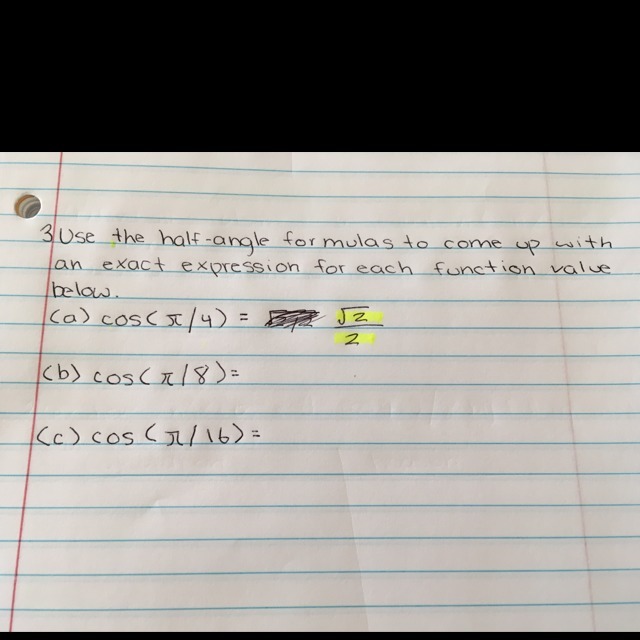 3 Use the half-angle formulas to come up with
an exact expression for each function value
below.
(a) cos(π/4) = √2/2
(b) cos(π/8)=
(c) cos(π/16)=